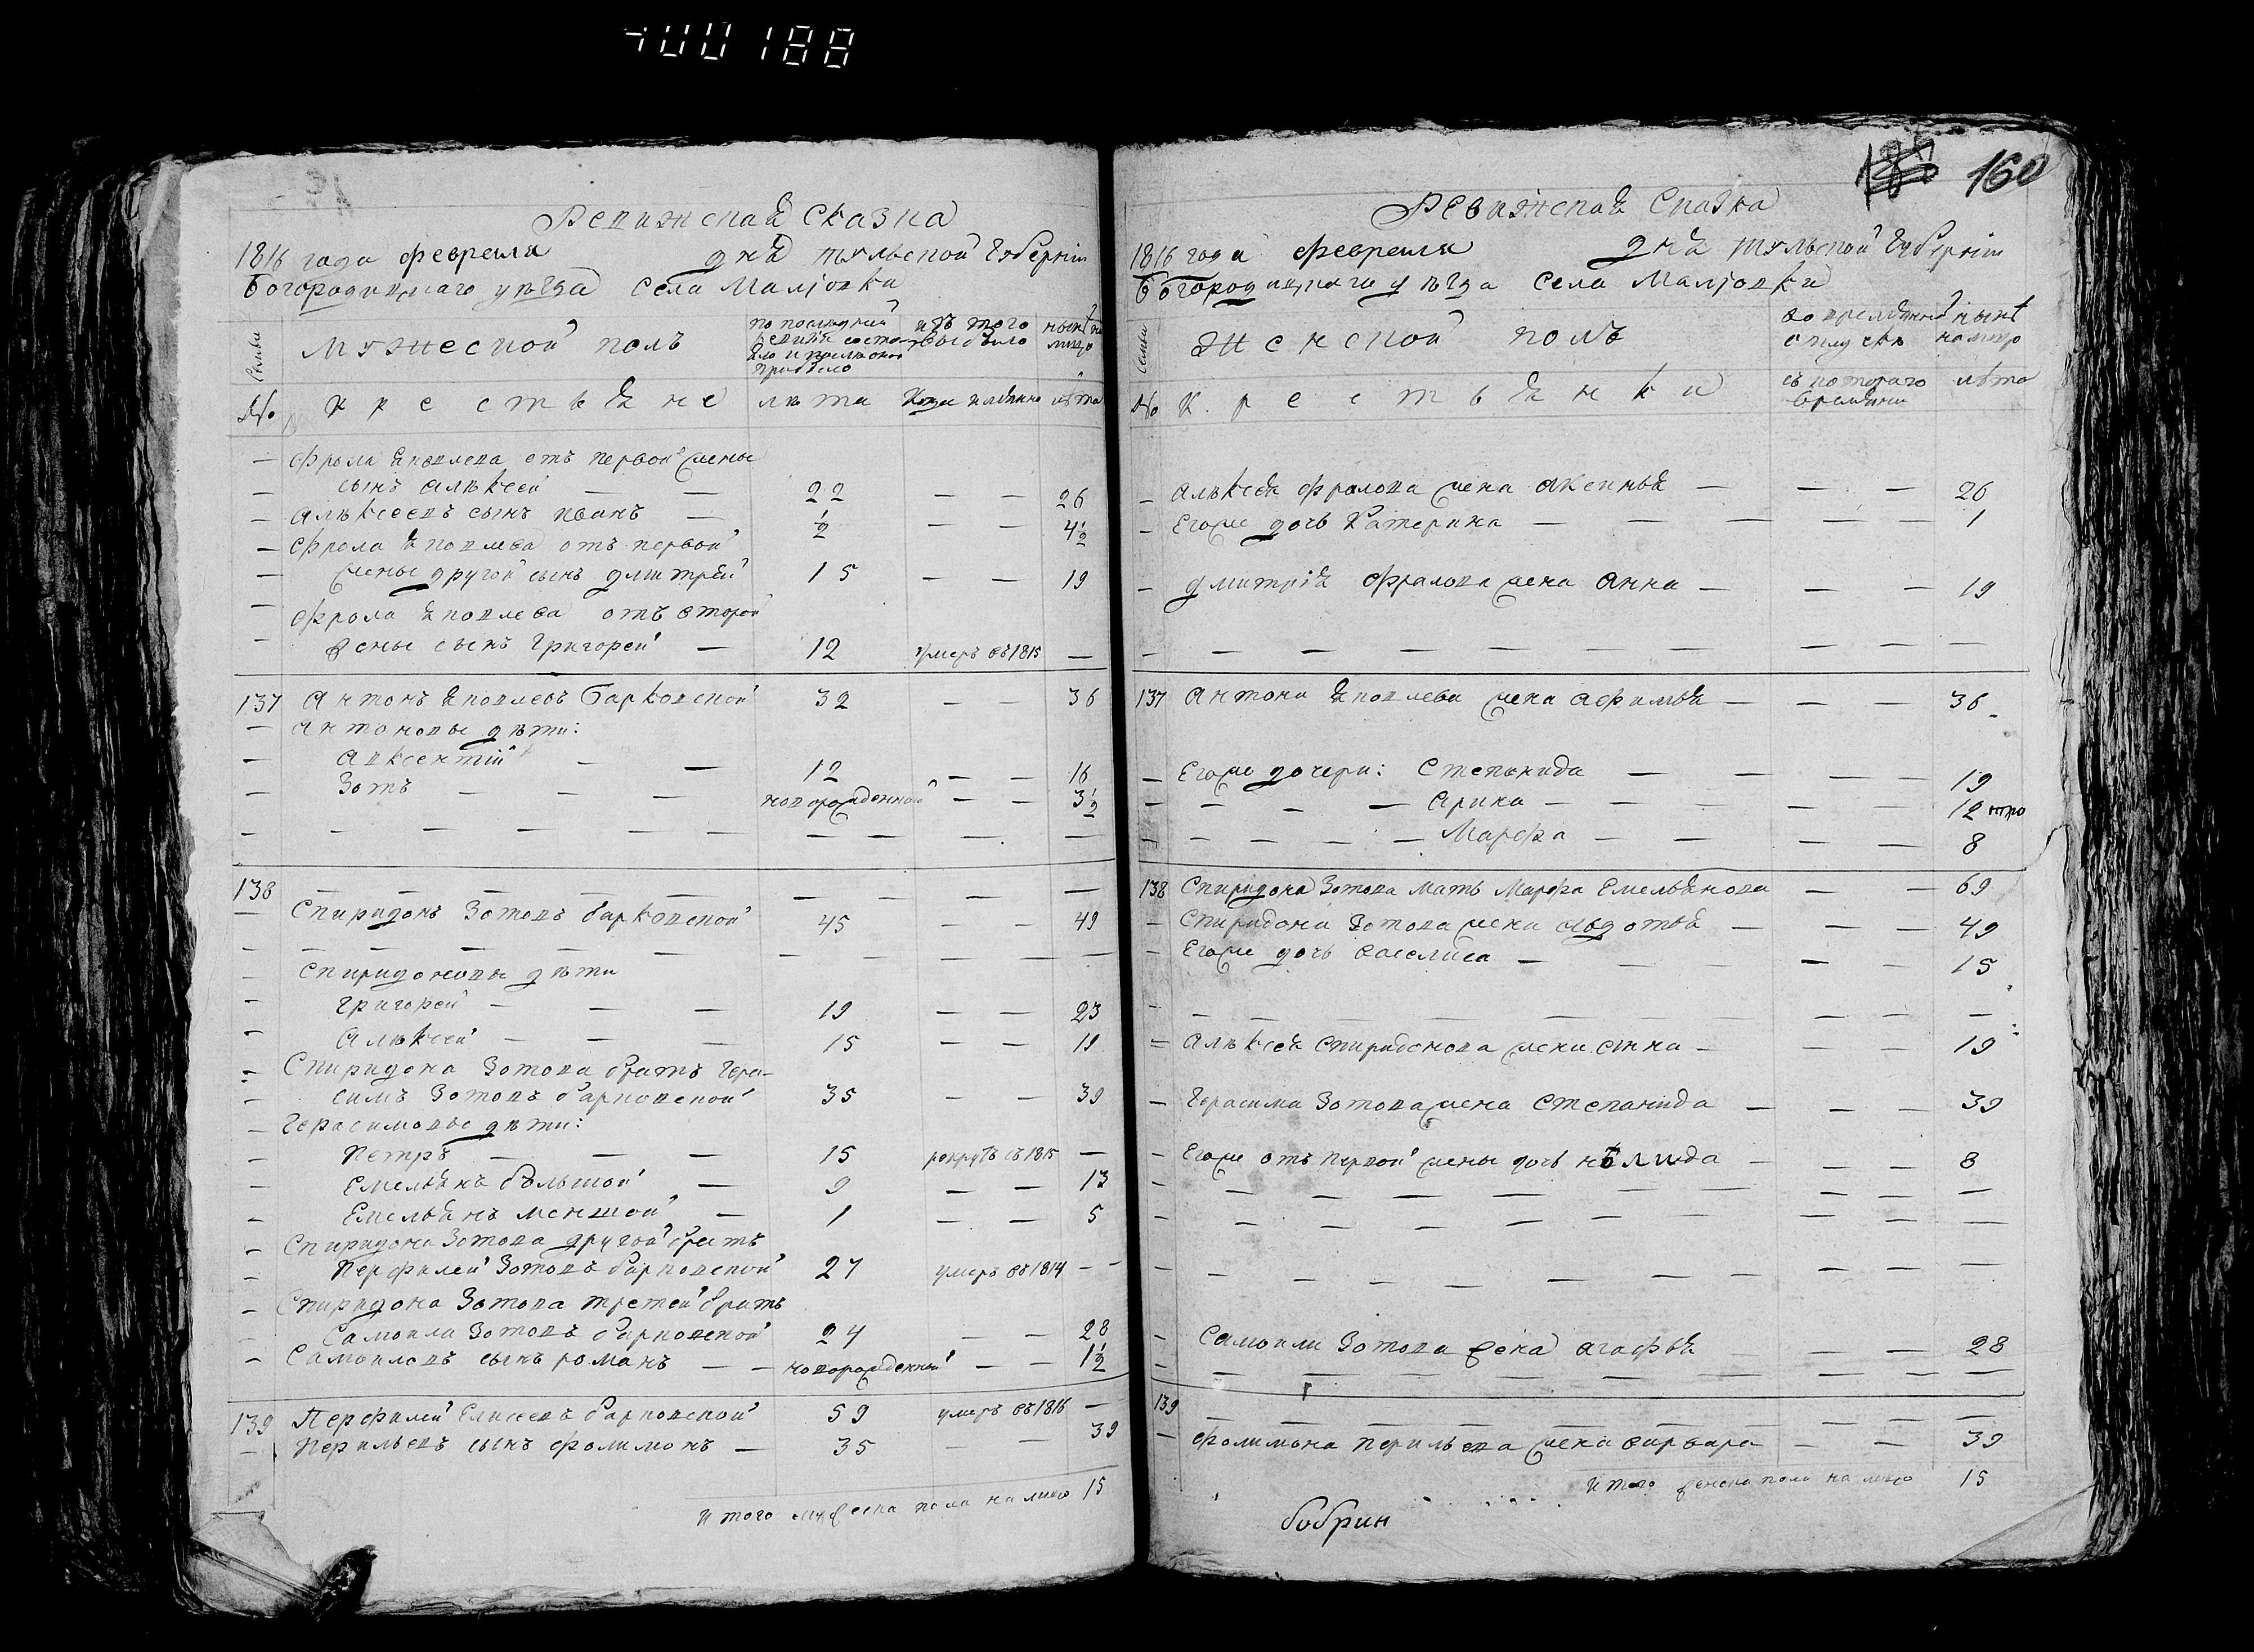 188
160
Ревижская Сказка
1816 года февреля дня тульской Губернiи
Богородицкаго уѣзда Села Малiовки
Семьи
Мужеской полъ
по последней ревизiи состояло и после оной прибыло
изъ того выбыло
нынѣ на лицо
№ Крестьяне лѣта Когда имянно лѣта
— Фрола Яковлева отъ первой жены
— сынъ Алѣксей — — 22 — — 26
— Алѣксеевъ сынъ иванъ — ½ — — 4½
— Фрола Яковлева отъ первой
— жены другой сынъ дмитрей 15 — — 19
— Фрола Яковлева отъ второй
— жены сынъ Григорей — 12 умеръ въ 1815 —
137 Антонъ Яковлевъ Барковской 32 — — 36
— Антоновы дѣти:
— Авксентiй — — 12 — — 16
— Зотъ — — — новорожденной — — 3½
— — — — — — — — — — —
138 — — — — — — — — —
— Спиридонъ Зотовъ барковской 45 — — 49
— — — — — — — — — — —
— Спиридоновы дѣти
— Григорей — — — 19 — — 23
— Алѣксей — — — 15 — — 19
— Спиридона Зотова братъ Гера-
— симъ Зотовъ барковской 35 — — 39
— Герасимовы дѣти:
— Петръ — — — 15 рекрутъ въ 1815 —
— Емельянъ большой — 9 — — 13
— Емельянъ меншой — 1 — — 5
— Спиридона Зотова другой братъ
— Перфилей Зотовъ барковской 27 умеръ въ 1814 — —
— Спиридона Зотова третей братъ
— Самоила Зотовъ барковской 24 — — 28
— Самоиловъ сынъ романъ — — новорожденной — — 1½
139 Перфилей Елисеевъ барковской 59 умеръ въ 1816 —
— Перильевъ сынъ фолимонъ — 35 — — 39
Итого мужеска пола на лицо 15
Ревижская Сказка
1816 года февреля дня тульской Губернiи
Богородицкаго уѣзда Села Малiовки
Семьи
Женской полъ
во временной отлучкѣ
нынѣ на лицо
№ Крестьянки съ котораго времяни лѣта
— Алѣксея Фролова жена Аксинья — — — 26
— Егоже дочь Катерина — — — — — 1
— дмитрiя Фролова жена Анна — — — 19
— — — — — — — — — — —
137 Антона Яковлева жена Афимья — — — 36
— Егоже дочери: Степанида — — — — 19
— — — — Арина — — — — 12
— — — — — — Марфа — — — — 8
138 Спиридона Зотова мать Марфа Емельянова — — 69
— Спиридона Зотова жена Авдотья — — — 49
— Егоже дочь василиса — — — — 15
— — — — — — — — — — —
— Алѣксея Спиридонова жена Анна — — — 19
— Герасима Зотова жена Степанида — — — 39
— Егоже отъ первой жены дочь нѣлида — — — 8
— — — — — — — — — — —
— — — — — — — — — — —
— — — — — — — — — — —
— Самоили Зотова жена Агафья — — — 28
— — — — — — — — — — —
139 — — — — — — — — — —
— фолимона Перильева жена варвара — — 39
Итого женска пола на лицо 15
бобрин